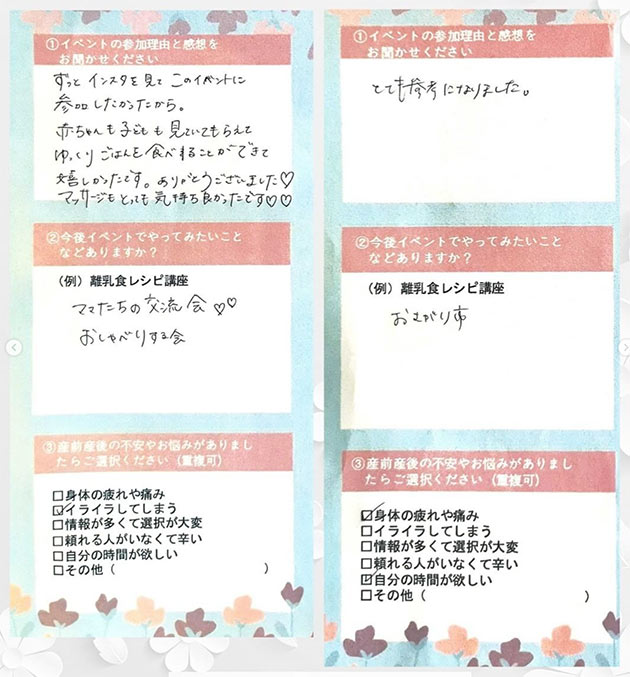 ①イベントの参加理由と感想を
お聞かせください
ずっとインスタを見てこのイベントに
参加したかったから。
赤ちゃんも子どもも見ていてもらえて
ゆっくりごはんを食べることができて
嬉しかったです。ありがとうございました♡
マッサージもとっても気持ち良かったです♡♡
②今後イベントでやってみたいこと
などありますか？
（例）離乳食レシピ講座
ママたちの交流会♡♡
おしゃべりする会
③産前産後の不安やお悩みがありまし
たらご選択ください（重複可）
☐身体の疲れや痛み
☑イライラしてしまう
☐情報が多くて選択が大変
☐頼れる人がいなくて辛い
☐自分の時間が欲しい
☐その他（　　　　　　　　　　）
①イベントの参加理由と感想を
お聞かせください
とても参考になりました。
②今後イベントでやってみたいこと
などありますか？
（例）離乳食レシピ講座
おさがり市
③産前産後の不安やお悩みがありまし
たらご選択ください（重複可）
☑身体の疲れや痛み
☐イライラしてしまう
☐情報が多くて選択が大変
☐頼れる人がいなくて辛い
☑自分の時間が欲しい
☐その他（　　　　　　　　　　）